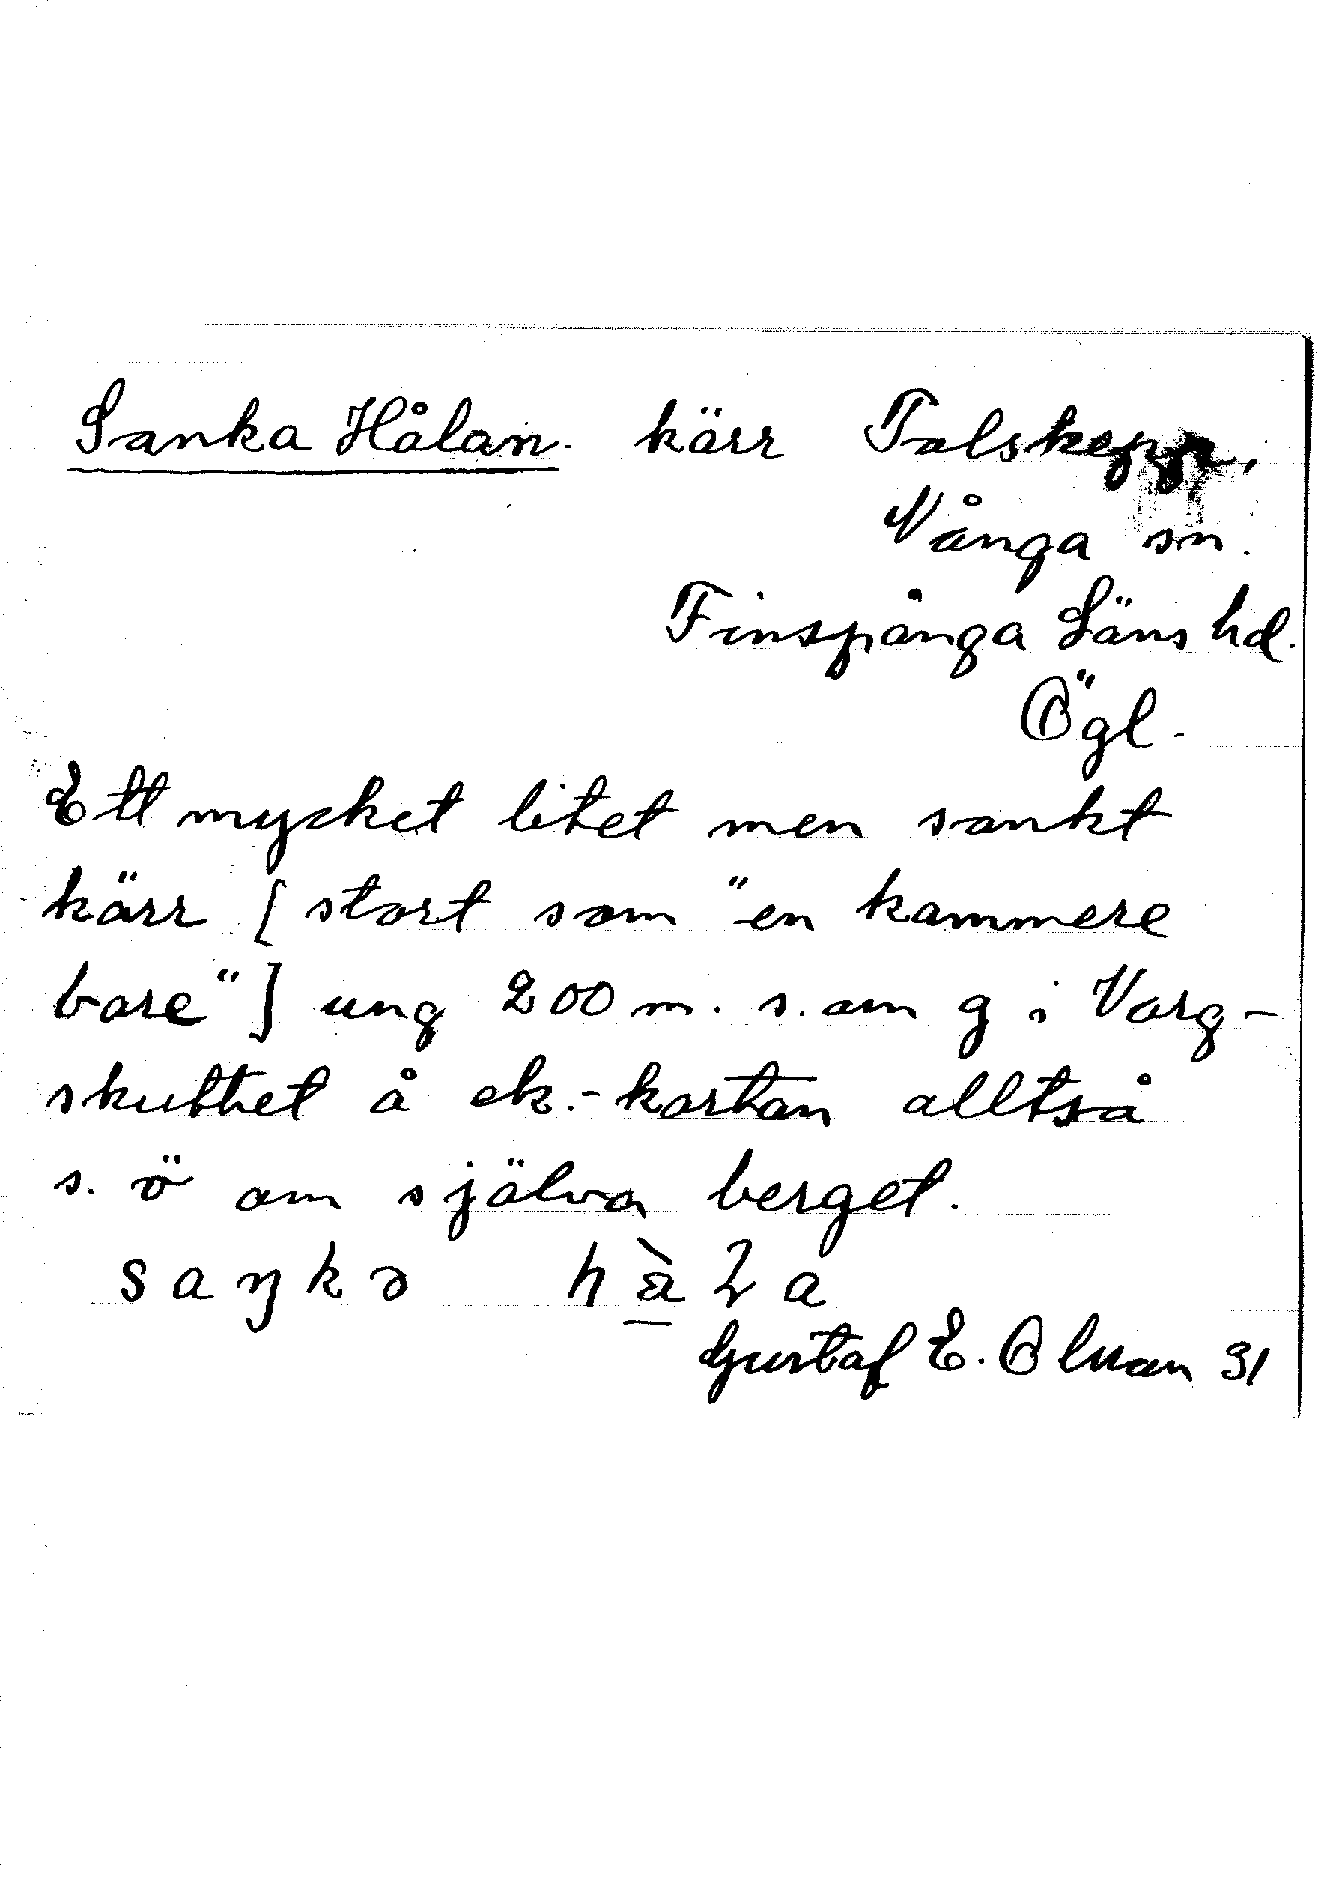 Sanka Hålan. kärr Talskepp,
Vånga sn.
Finspånga Läns hd.
Ögl.
Ett mycket litet men sankt
kärr [stort som "en kammere
bare"] ung 200 m. s. om g i Varg-
skuttet å ek.-kartan alltså
s. ö om själva berget.
saŋkə hàla
Gustaf E. Olman 31